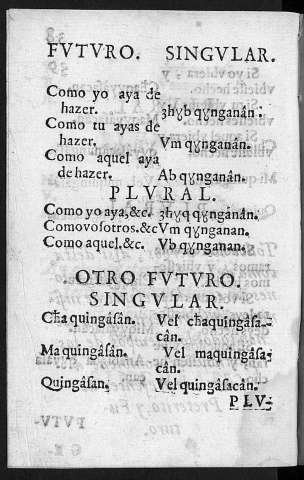 FVTVRO. SINGVLAR.
Como yo aya de
hazer. ʒhɣb qɣnganân.
Como tu ayas de
hazer. Vm qɣnganân.
Como aquel aya
de hazer. Ab qɣnganân.
PLVRAL.
Como yo aya,&c. ʒhɣq qɣngánân.
Comovosotros.&c Vm qɣnganan.
Como aquel.&c. Vb qɣnganan.
OTRO FVTVRO.
SINGVLAR.
Cħa quingâsân. Vel cħaquingâsa-
cân.
Ma quingâsân. Vel maquingâsa-
cân.
Quingâsan. Vel quingâsacân.
PLV-